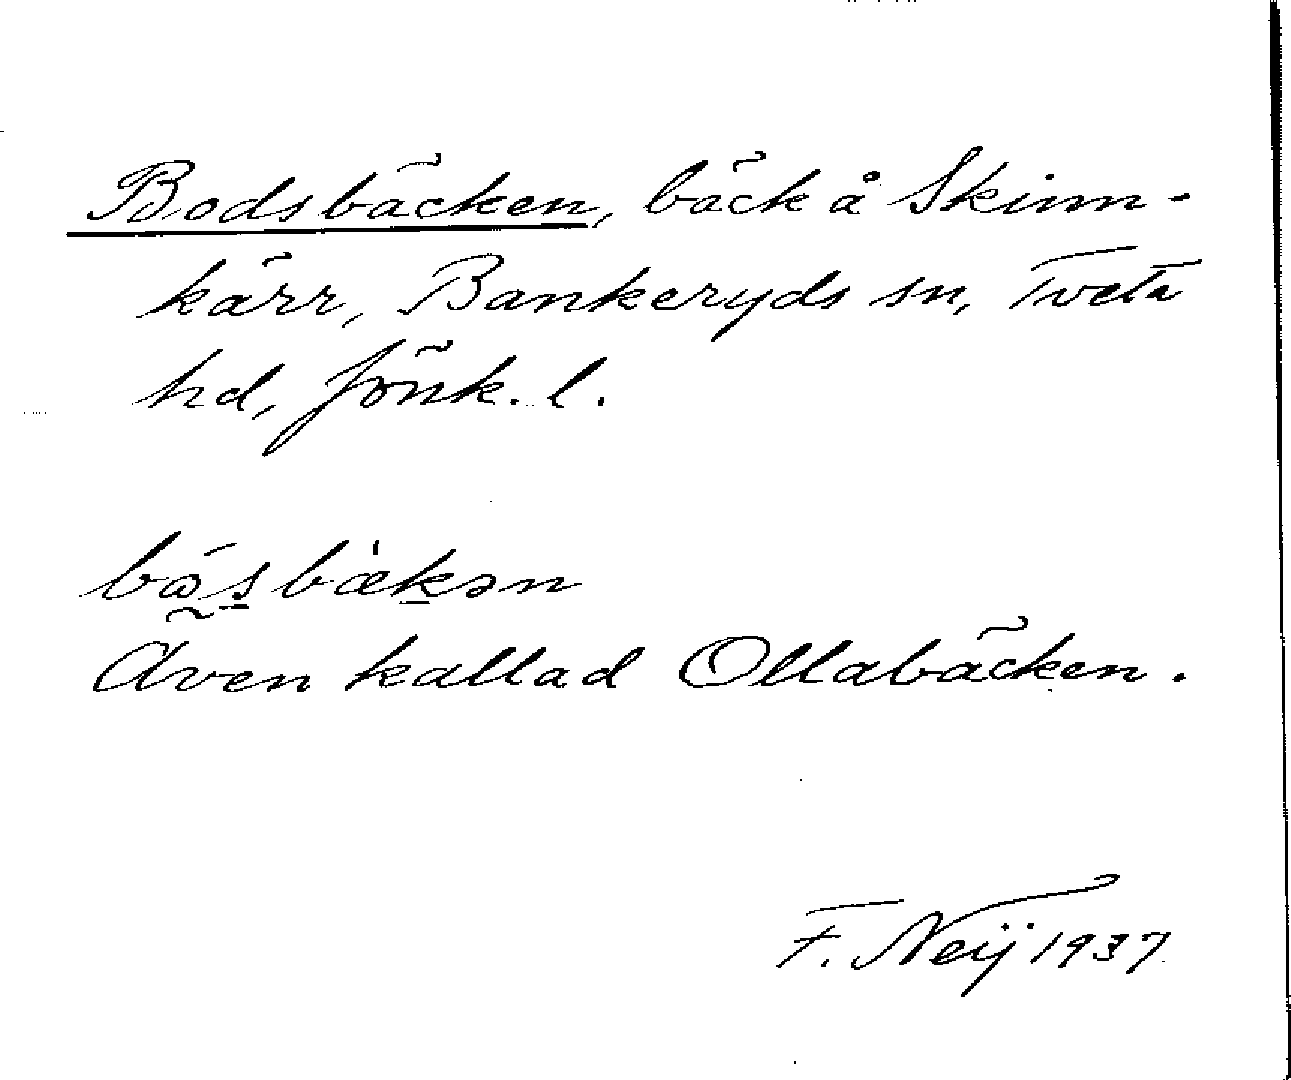 Bodsbäcken, bäck å Skinn-
kärr, Bankeryds sn, Tveta
hd, Jönk. l.
Även kallad Ollabäcken.
F. Neij 1937